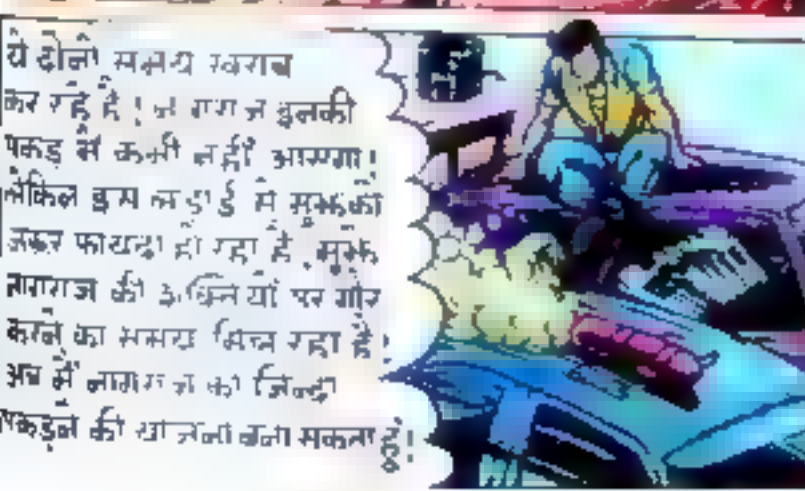 ये दोनों समय खराब
कर रहे हैं! नागराज इनकी
पकड़ में कभी नहीं आएगा!
लेकिन इस लड़ाई से मुझको
जरूर फायदा हो रहा है. मुझे
नागराज की शक्तियों पर गौर
करने का समय मिल रहा है!
अब मैं नागराज को जिन्दा
पकड़ने की योजना बना सकता हूं!